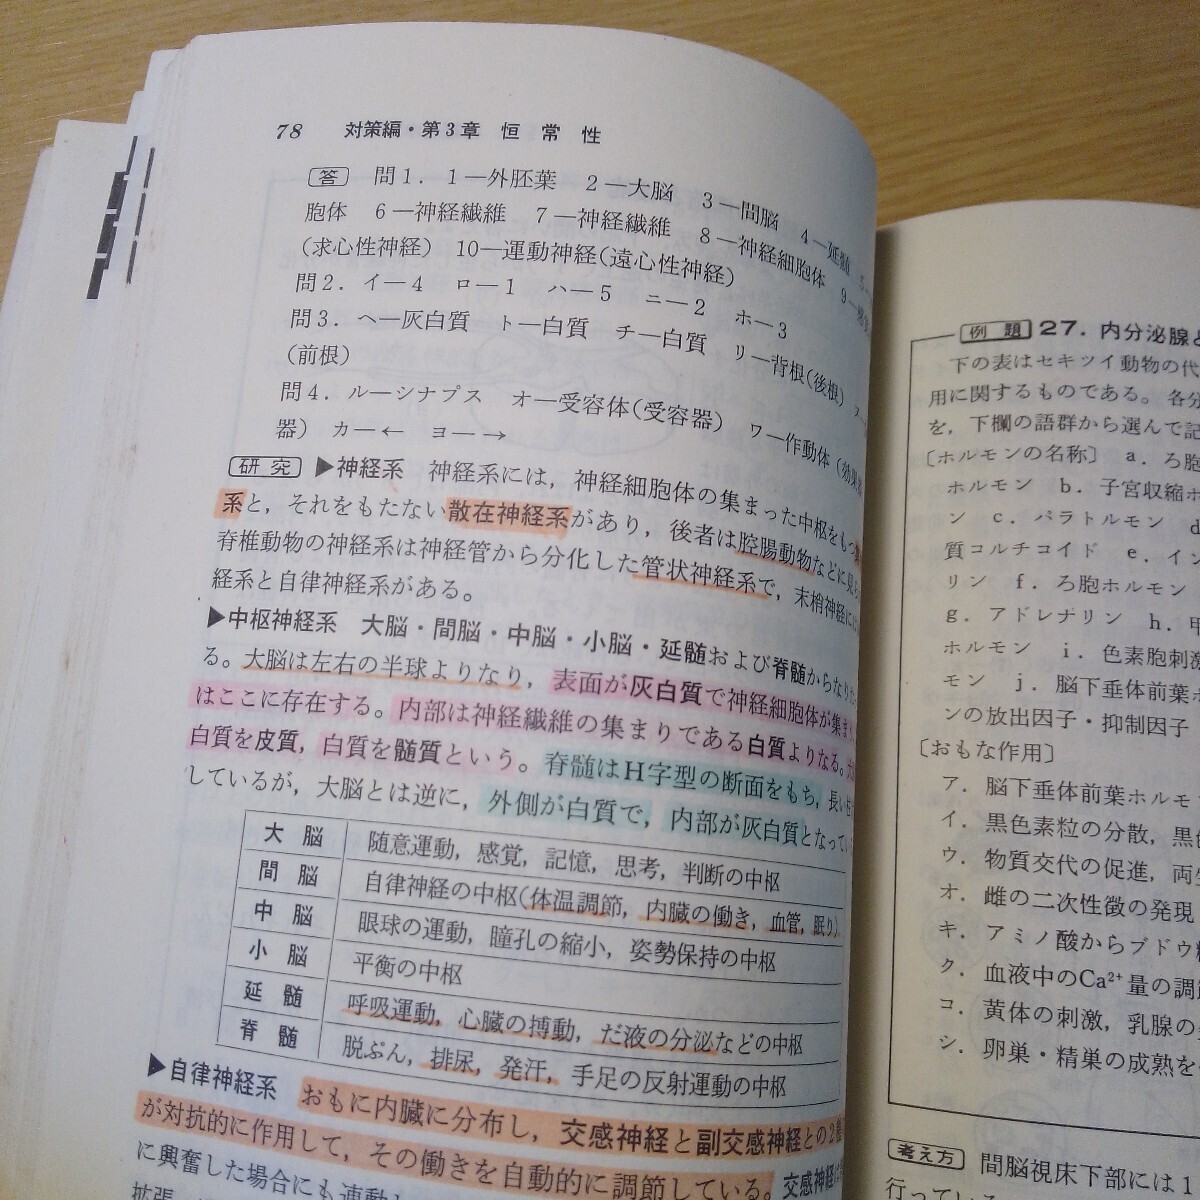 78 対策編・第3章 恒常性
答 問1. 1―外胚葉 2―大脳 3―間脳 4―延髄 5―
胞体 6―神経繊維 7―神経繊維 8―神経細胞体 9―感覚
(求心性神経) 10―運動神経(遠心性神経)
問2. イ―4 ロ―1 ハ―5 ニ―2 ホ―3
問3. ヘ―灰白質 ト―白質 チ―白質 リ―背根(後根) ヌ―
(前根)
問4. ル―シナプス オ―受容体(受容器) ワ―作動体(効果
器) カ―← ヨ―→
研究 ▶神経系 神経系には，神経細胞体の集まった中枢をもつ
系と，それをもたない散在神経系があり，後者は腔腸動物などに見ら
脊椎動物の神経系は神経管から分化した管状神経系で，末梢神経には
経系と自律神経系がある。
▶中枢神経系 大脳・間脳・中脳・小脳・延髄および脊髄からなり
る。大脳は左右の半球よりなり，表面が灰白質で神経細胞体が集まり
はここに存在する。内部は神経繊維の集まりである白質よりなる。
白質を皮質，白質を髄質という。脊髄はH字型の断面をもち，長い
しているが，大脳とは逆に，外側が白質で，内部が灰白質となってい
大脳 随意運動，感覚，記憶，思考，判断の中枢
間脳 自律神経の中枢(体温調節，内臓の働き，血管，眠り)
中脳 眼球の運動，瞳孔の縮小，姿勢保持の中枢
小脳 平衡の中枢
延髄 呼吸運動，心臓の搏動，だ液の分泌などの中枢
脊髄 脱ぷん，排尿，発汗，手足の反射運動の中枢
▶自律神経系 おもに内臓に分布し，交感神経と副交感神経との2種
が対抗的に作用して，その働きを自動的に調節している。交感神経は
に興奮した場合にも連動し
拡張
例題 27. 内分泌腺と
下の表はセキツイ動物の代
用に関するものである。各分
を，下欄の語群から選んで記
〔ホルモンの名称〕 a．ろ胞
ホルモン b．子宮収縮ホ
ン c．パラトルモン d
質コルチコイド e．イン
リン f．ろ胞ホルモン
g．アドレナリン h．甲
ホルモン i．色素胞刺激
モン j．脳下垂体前葉ホ
ンの放出因子・抑制因子
〔おもな作用〕
ア．脳下垂体前葉ホルモ
イ．黒色素粒の分散，黒色
ウ．物質交代の促進，両生
オ．雌の二次性徴の発現
キ．アミノ酸からブドウ糖
ク．血液中のCa²⁺量の調節
コ．黄体の刺激，乳腺の
シ．卵巣・精巣の成熟を
考え方 間脳視床下部には1
行っている